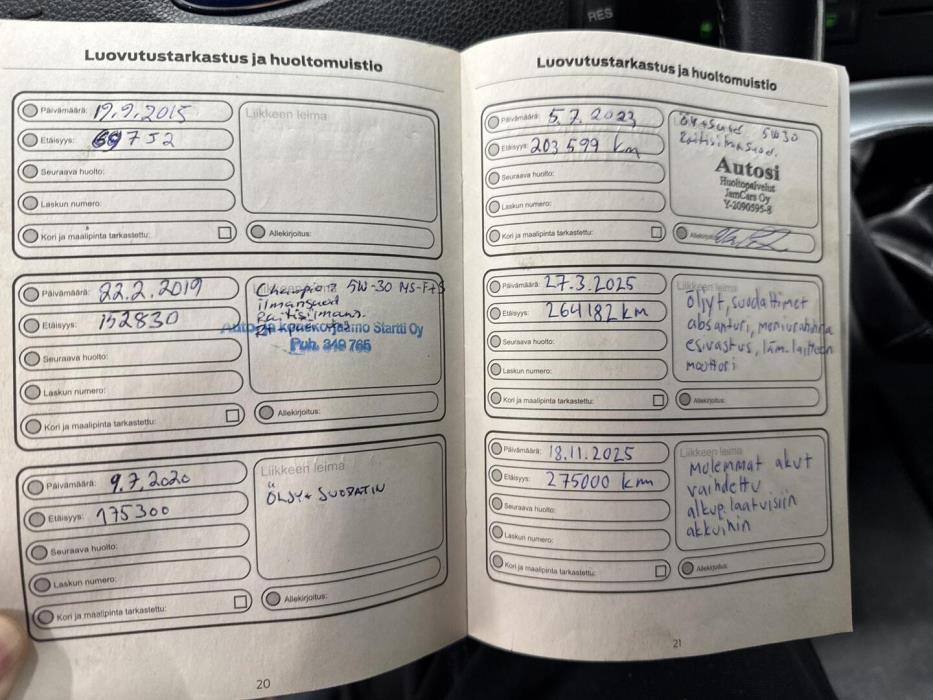 RES
Luovutustarkastus ja huoltomuistio
Päivämäärä: 19.9.2015
Etäisyys: 69752
Seuraava huolto:
Laskun numero:
Kori ja maalipinta tarkastettu:
Liikkeen leima
Allekirjoitus:
Päivämäärä: 22.2.2019
Etäisyys: 152830
Seuraava huolto:
Laskun numero:
Kori ja maalipinta tarkastettu:
Champion 5W-30 MS-F+S
ilmansuod
Raitisilmans.
Startti Oy
Puh. 349 765
Allekirjoitus:
Päivämäärä: 9.7.2020
Etäisyys: 175300
Seuraava huolto:
Laskun numero:
Kori ja maalipinta tarkastettu:
Liikkeen leima
ÖLJY+ SUODATIN
Allekirjoitus:
20
Luovutustarkastus ja huoltomuistio
Päivämäärä: 5.7.2023
Etäisyys: 203599 km
Seuraava huolto:
Laskun numero:
Kori ja maalipinta tarkastettu:
5W30
Raitisilmasuod.
Autosi
Huoltopalvelut
JamCars Oy
Y-2090595-8
Päivämäärä: 27.3.2025
Etäisyys: 264182 km
Seuraava huolto:
Laskun numero:
Kori ja maalipinta tarkastettu:
Liikkeen leima
öljyt, suodattimet
abs anturi, moniurahihna
esivastus, läm.laitteen
moottori
Allekirjoitus:
Päivämäärä: 18.11.2025
Etäisyys: 275000 km
Seuraava huolto:
Laskun numero:
Kori ja maalipinta tarkastettu:
Liikkeen leima
Molemmat akut
vaihdettu
alkup. laatuisiin
akkuihin
Allekirjoitus:
21